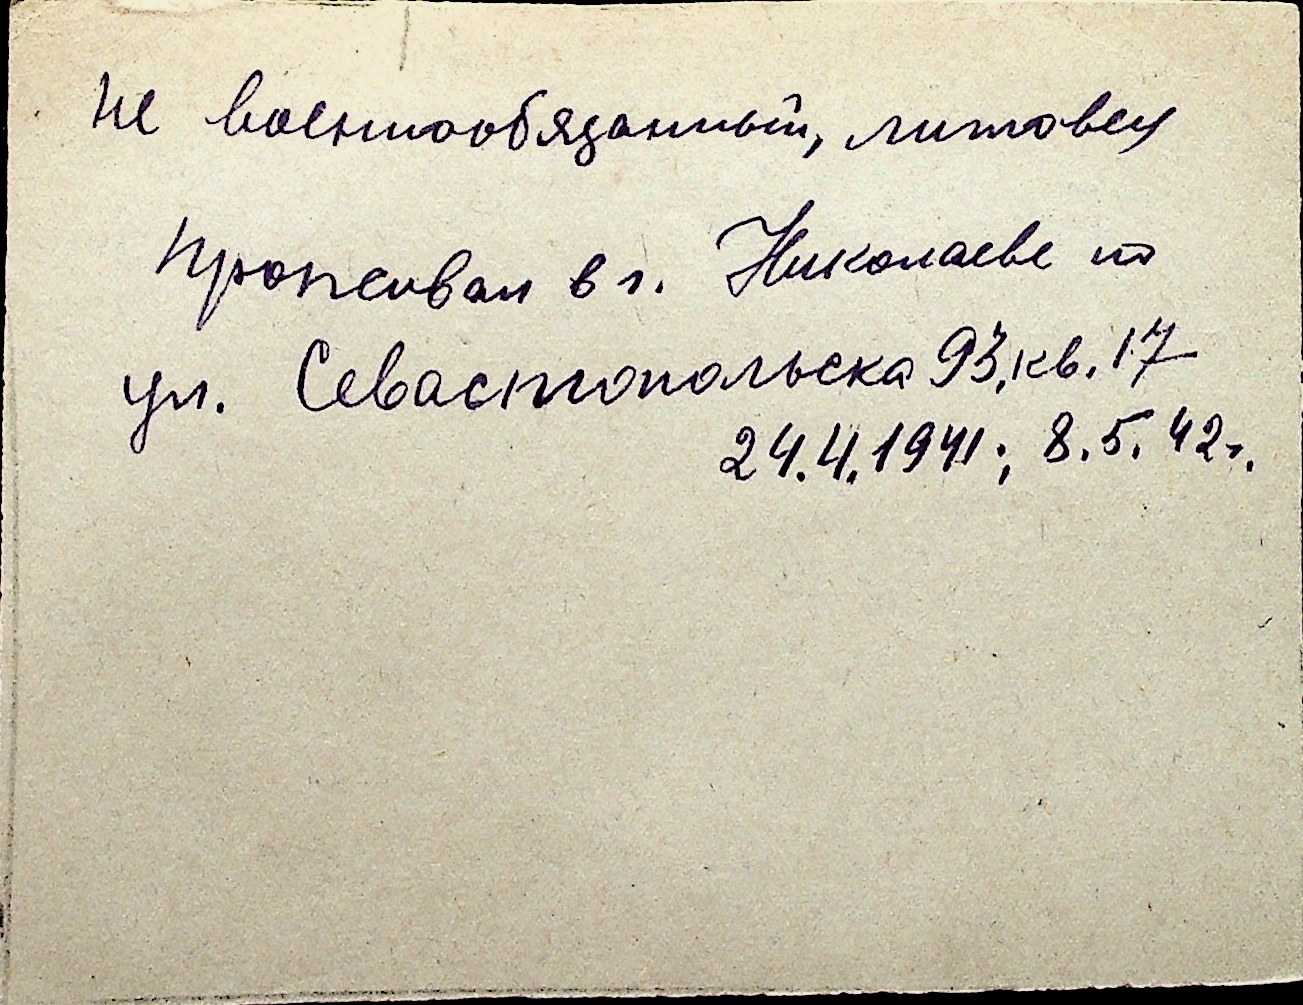 Не военнообязанный, литовец
Проживал в г. Николаеве по
ул. Севастопольска 93, кв. 17
24.4.1941; 8.5.42г.